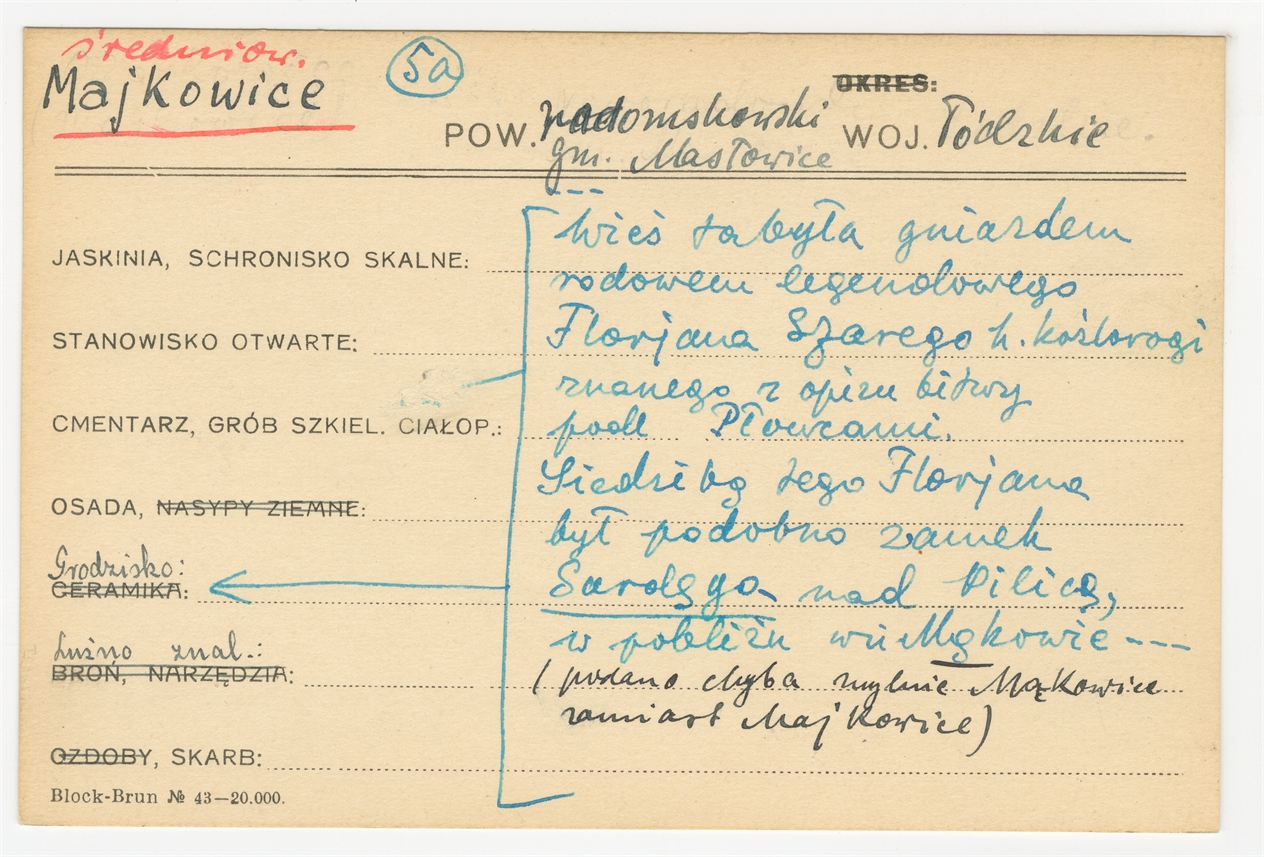 średniow.
Majkowice
5a
OKRES:
POW. radomskowski WOJ. Łódzkie
gm. Masłowice
JASKINIA, SCHRONISKO SKALNE:
STANOWISKO OTWARTE:
CMENTARZ, GRÓB SZKIEL. CIAŁOP.:
OSADA, NASYPY ZIEMNE:
Grodzisko:
CERAMIKA:
Luźno znal.:
BROŃ, NARZĘDZIA:
OZDOBY, SKARB:
Block-Brun № 43—20.000.
--- Wieś ta była gniazdem
rodowem legendowego
Florjana Szarego h. koźlorogi
znanego z opisu bitwy
pod Płowcami.
Siedzibą tego Florjana
był podobno zamek
Surdęga nad Pilicą,
w pobliżu wsi Mąkowic ---
(podano chyba mylnie Mąkowice
zamiast Majkowice)